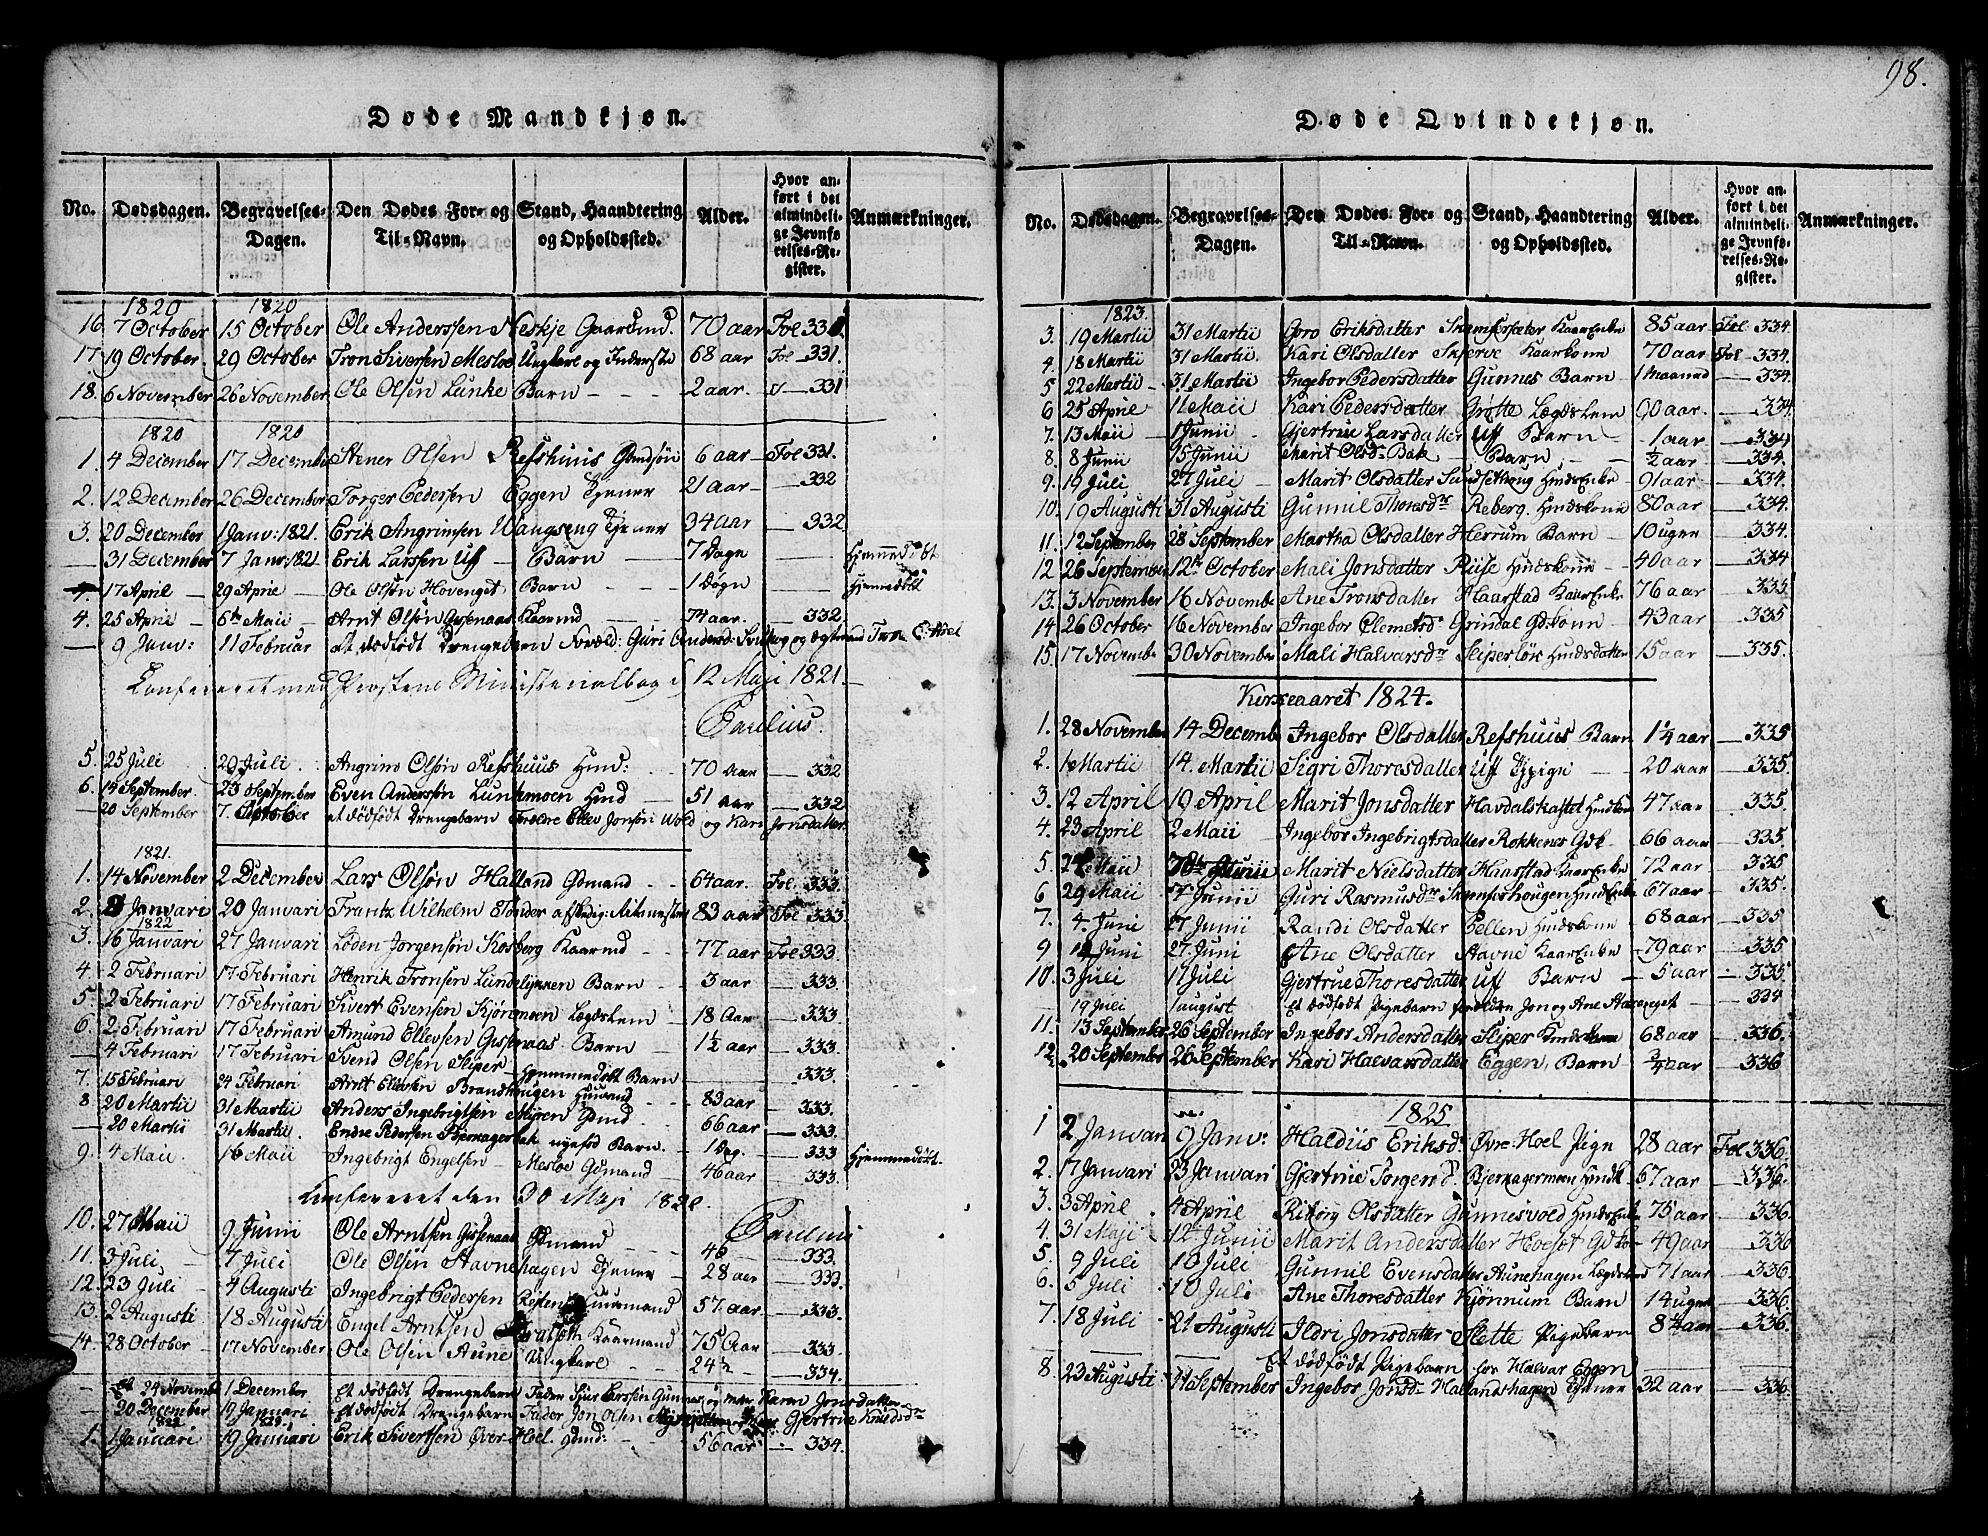 98.
Døde Mandkjøn.
No. Dødsdagen. Begravelses-Dagen. Den Dødes For- og Til-Navn. Stand, Haandtering og Opholdssted. Alder. Hvor anført i det almindelige Jevnførelses-Register. Anmærkninger.
1820 1820
16. 7 October 15 October Ole Anderssen Neskje Gaardmd. 70 aar Fol 331.
17. 19 October 29 October Tron Sivertsen Mesloe Ungkarl og Inderste 68 aar Fol 331.
18. 6 November 26 November Ole Olsen Lunke Barn 2 aar 331
1820 1820
1. 4 December 17 December Stener Olsen Refshuus 6 aar Fol 331.
2. 12 December 26 December Torger Pedersen Eggen Tjener 21 aar 332
3. 20 December 1 Janv: 1821. Erik Angrimsen Wangseng Tjener 34 aar 332
31 December 7 Janv: 1821 Erik Larssen Uff Barn 7 Dage Hjemmedøbt
17 April 29 Aprie Ole Olsøn Hovenget Barn 1 Døgn Hjemmedøbt
4. 25 Aprie 6te Maii Arnt Olsøn Gisenaas Kaarmd 74 aar. 332
9 Janv: 11 Februar et dødfødt Drengebarn Foræld: Guri
Confereret med Prostens Ministerialbog d 12 Maji 1821.
Paulius.
5. 25 Juli 29 Juli Angrim Olsøn Refshuus Hmd: 70 Aar 332
6. 14 September 23 September Even Anderssøn Lunkmoen Hmd 51 aar 332
20 September 7. October et dødfødt Drengebarn Forældre Ellev Jonsøn Wold og Kari Jonsdatter
1821.
1. 14 November 2 December Lars Olsøn Halland Gdmand 64 aar. Fol. 333.
2. Janvari 20 Janvari Frantz Wilhelm Stonder afskedig: 83 aar Fol 333.
1822
3. 16 Janvari 27 Janvari Loden Jorgensøn Kosberg Kaarmd 77 aar Fol 333.
4. 2 Februari 17 Februari Henrik Tronsen Lundslykken Barn 3 aar 333.
5. 2 Februari 17 Februari Sivert Evensen Kjøremoen Lægdslem 18 Aar 333.
6. 2 Februari 17 Februari Amund Ellevsen Gisenaas Barn 1½ aar 333.
4 Februari 17 Februari Svend Olsen Sliper Hjemmedøbt Barn
7. 15 Februari 24 Februari Arnt Ellevsen Brandhaugen Huusmand 83 aar 333.
8 20 Martii 31 Martii Anders Ingebrigtsen Myren Gdmd 66 aar 333.
20 Martii 31 Martii. Endre Pedersen Bjerkager et nyefød Barn. 1 Dag. 333 Hjemmedøbt.
9. 4 Maii 16 Maii Ingebrigt Engelsen Mesloe Gdmand 46 aar 333.
Confereret den 30 Maji 1822.
Paulius
10. 27 Maii 9 Junii Ole Arntsen Gisenaas Gdmand 40 333.
11. 3 Juli 7 Juli Ole Olsøn Stavnehagen Tjener 28 aar 333.
12. 23 Juli 4 Augusti Ingebrigt Pedersen Huusmand 57 aar 333.
13. 2 Augusti 18 Augusti Engel Arntsen Kaarmand 75 Aar 333.
14. 28 October 17 November Ole Olsen Aune Ungkarl 24½ 334.
24 Novembe 1 December Et dødfødt Drengebarn Fader Siur Larssen Gunnes og moder Karen Jonsdatter
20 December 19 Janvari et dødfødt Drengebarn Fader Jon Olsen Gjertrue Knudsdr
1822 1823
1. 1 Januari 19 Januari Erik Sivertsen Øver-Hoel. Gdmd: 56 aar 334.
Døde Qvindekjøn.
No. Dødsdagen. Begravelses-Dagen. Den Dødes For- og Til-Navn. Stand, Haandtering og Opholdssted. Alder. Hvor anført i det almindelige Jevnførelses-Register. Anmærkninger.
1823.
3. 19 Martii 31 Martii Goro Eriksdatter Skamfersæter KaarEnke 85 aar Fol 334.
4. 18 Martii 31 Martii. Kari Olsdatter Skjerve Kaarkone 70 aar Fol 334.
5 22 Martii 31 Martii Ingebor Pedersdatter Gunnes Barn 1 Maaned 334.
6 25 Aprie 11 Maii Kari Pedersdatter Grøtte Lægdslem 90 aar. 334.
7. 13 Maii 1 Junii Gjertrue Larsdatter Uff Barn 1 aar 334
8. 8 Junii 15 Junii Marit Olsd. Bak Barn ½ aar 334.
9. 19 Juli 27 Juli Marit Olsdatter HmdsEnke 91 aar 334.
10. 19 Augusti 31 Augusti Gunnil Thoresdr Reberg Hmdskone 80 aar 334.
11. 12 September 28 September Martha Olsdatter Herrum Barn 10 uger 334.
12 26 September 12te October Mali Jonsdatter Riise Hmdskone 40 aar 334
13. 3 November 16 Novembe Ane Tronsdatter Haarstad KaarEnke 76 aar 335.
14 26 October 16 November Ingebor Clemetsd. Grindal Gdkone 43 aar 335
15. 17 Novembe 30 November Mali Halvarsdr Sliperløk Hmdsdatter 15 aar 335.
Kirkeaaret 1824.
1. 28 November 14 Decembe Ingebor Olsdatter Refshuus Barn 1¼ aar 335
2. 1 Martii 14. Martii Sigri Thoresdatter Uff Pige 20 aar 335.
3. 12 April 19 April Marit Jonsdatter Havdalskaftet 47 aar 335.
4. 23 April 2 Maii Ingebor Ingebrigtsdatter Rokkenes Gdk. 66 aar 335.
5. Maii Junii Marit Nielsdatter Haarstad KaarEnke 72 aar 335
6 29 Maii 7 Junii Guri Rasmusdr Skamfershougen HmdsEnke 67 aar 335.
7. 4. Juni 27 Junii Randi Olsdatter Pellen Hmdskone 68 aar 335
9 12 Juni 27. Juni Ane Olsdatter Stavne KaarEnke 79 aar 335.
10. 3 Juli 11 Juli Gjertrue Thoresdatter Uff Barn 5 aar 335.
19 Juli 1 august Et dødfødt Pigebarn foreldre Jon og Ane 334
11. 13 September 26 September Ingebor Andersdatter Sliper Hmdskone 68 aar 336.
12. 20 September 26 September Kari Halvarsdatter Eggen, Barn ¾ aar 336
1825
1 2 Janvari 9 Janv: Haldiis Eriksd. Øvre-Hoel Pige 28 aar Fol 336.
2. 17 Janvari 23 Janvari Gjertrue Torgersd Bjerkagermoen Hmdk. 67 aar 336.
3. 3 April 4 April Olsdatter Gunnesvold HmdsEnke 75 aar 336.
4. 31 Maji 12 Junii Marit Andersdatter Hoesøt Gdkone 49 aar 336
5. 9 Juli 10 Juli Gunnil Evensdatter Aunehagen Lægdslem 71 aar 336.
6. 5 Juli 10 Juli Ane Thoresdatter Kjønnum Barn 14 uger 336.
7. 18 Juli 21 Augusti Ildri Jonsdatter Slette Pigebarn 8¾ aar 336.
Et dødfødt Pigebarn for Halvar Eggen
8. 23 Augusti 11 September Ingebor Jonsd. Hallandshagen Tjener 32 aar 336.